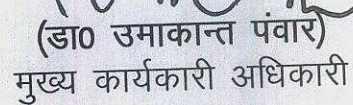 (डा0 उमाकान्त पंवार)
मुख्य कार्यकारी अधिकारी